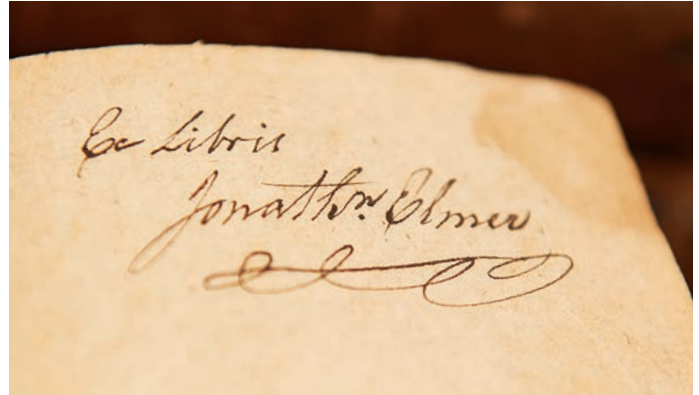 Ex Libris
Jonathn Elmer